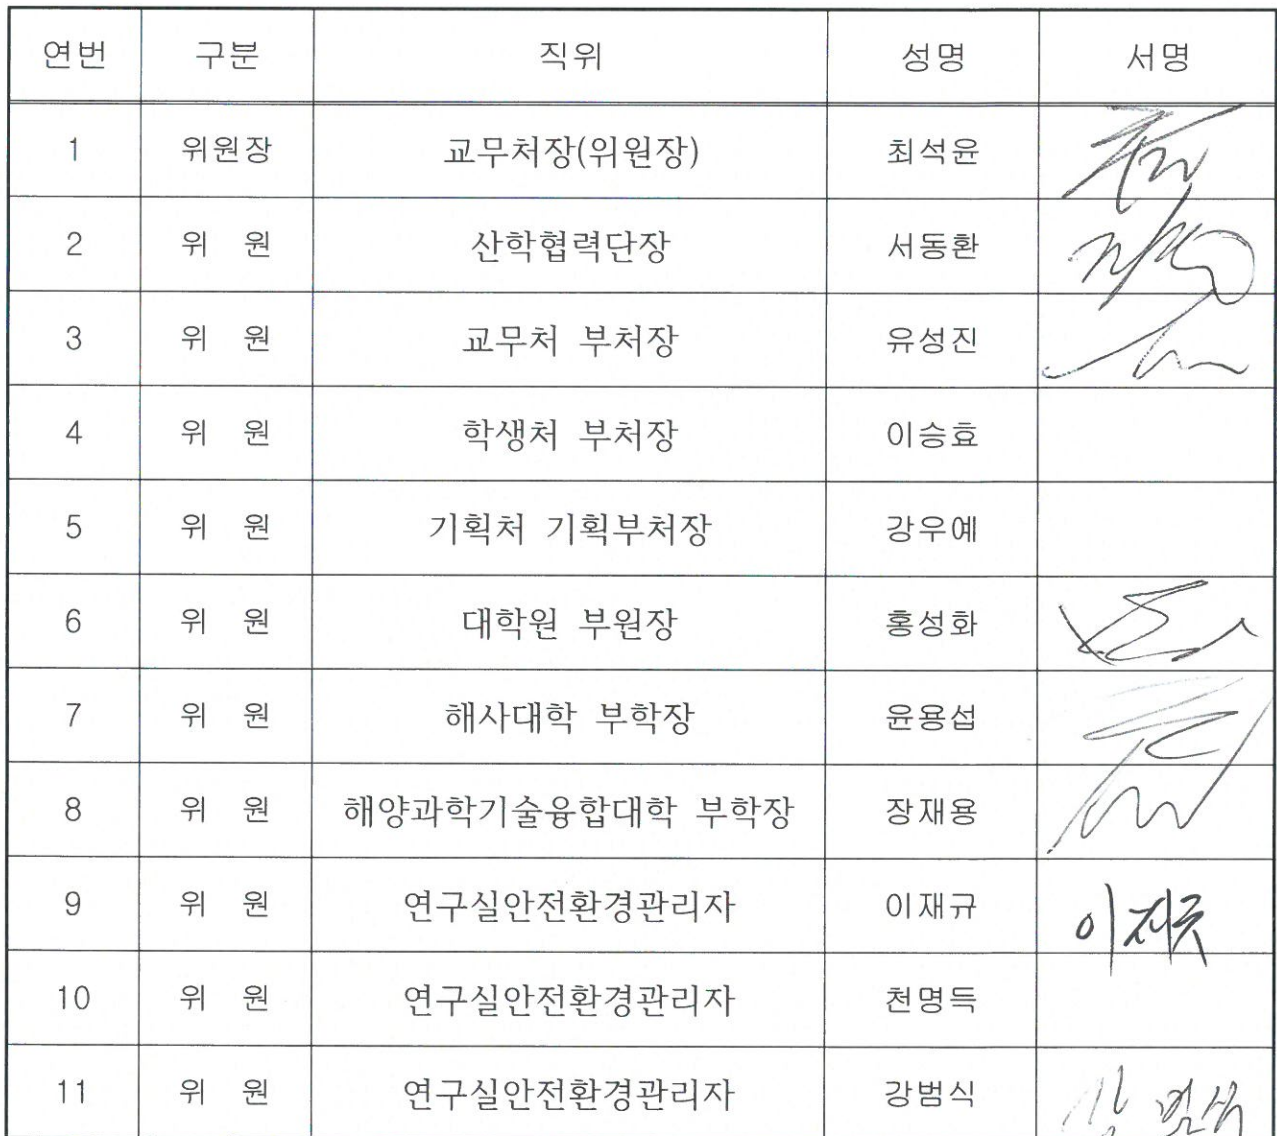 연번 구분 직위 성명 서명
1 위원장 교무처장(위원장) 최석윤
2 위 원 산학협력단장 서동환
3 위 원 교무처 부처장 유성진
4 위 원 학생처 부처장 이승효
5 위 원 기획처 기획부처장 강우예
6 위 원 대학원 부원장 홍성화
7 위 원 해사대학 부학장 윤용섭
8 위 원 해양과학기술융합대학 부학장 장재용
9 위 원 연구실안전환경관리자 이재규 이재규
10 위 원 연구실안전환경관리자 천명득
11 위 원 연구실안전환경관리자 강범식